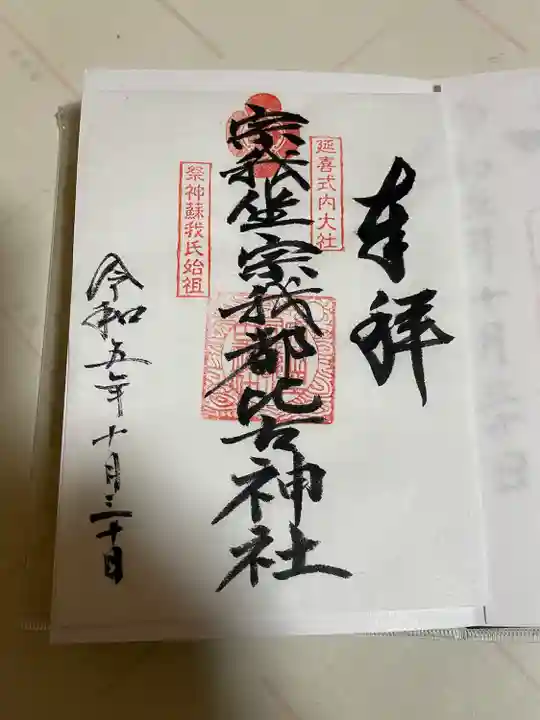 奉拝
延喜式内大社
宗我坐宗我都比古神社
祭神蘇我氏始祖
令和五年十月三十日